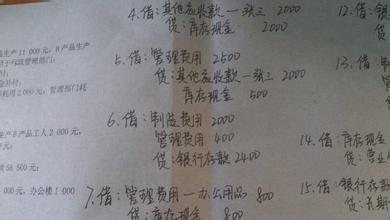 4.借：其他应收款—张三 2000
贷：库存现金 2000
5.借：管理费用 2500
贷：其他应收款—张三 2000
库存现金 500
6.借：制造费用 2000
管理费用 400
贷：银行存款 2400
7.借：管理费用—办公用品 800
贷：库存现金 800
12.借：银
贷：
13.借：
14.借：库存现金
贷：营业
15.借：银行存款
贷：长期
品生产 11 000 元，B产品生产
用于行政管理部门：
金补付：
耗用 2 000 元，管理部门耗
生产B产品工人 2 000 元，
放 56 500 元：
000 元，办公楼 1 000